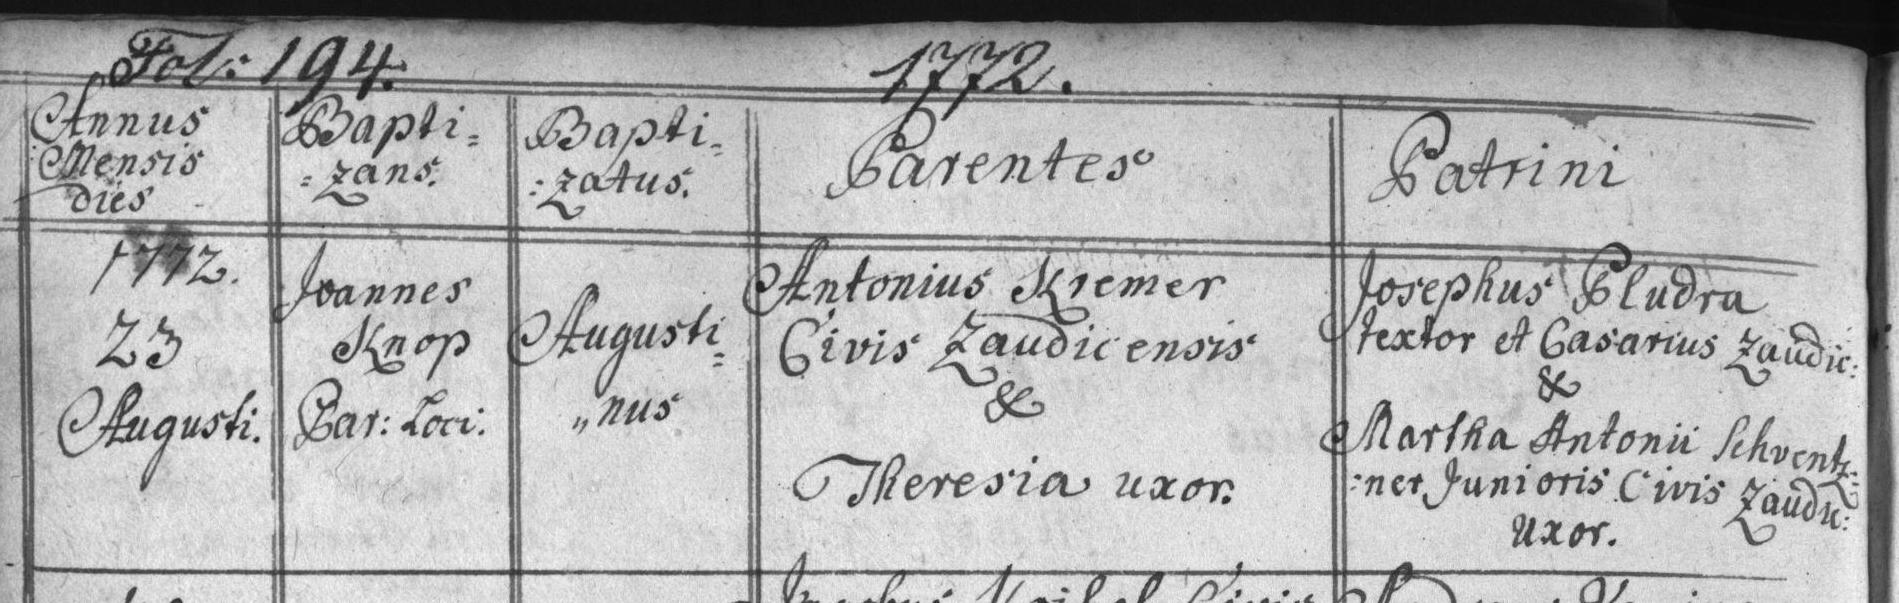 Fol: 194.
1772.
Annus
Mensis
dies
Bapti=
=zans.
Bapti=
=zatus.
Parentes
Patrini
1772.
23
Augusti.
Joannes
Knop
Par: Loci.
Augusti=
„nus
Antonius Kremer
Civis Zaudicensis
&
Theresia uxor.
Josephus Pludra
textor et Casarius Zaudic:
&
Martha Antonii Schventz=
=ner Junioris Civis Zaudic:
Uxor.